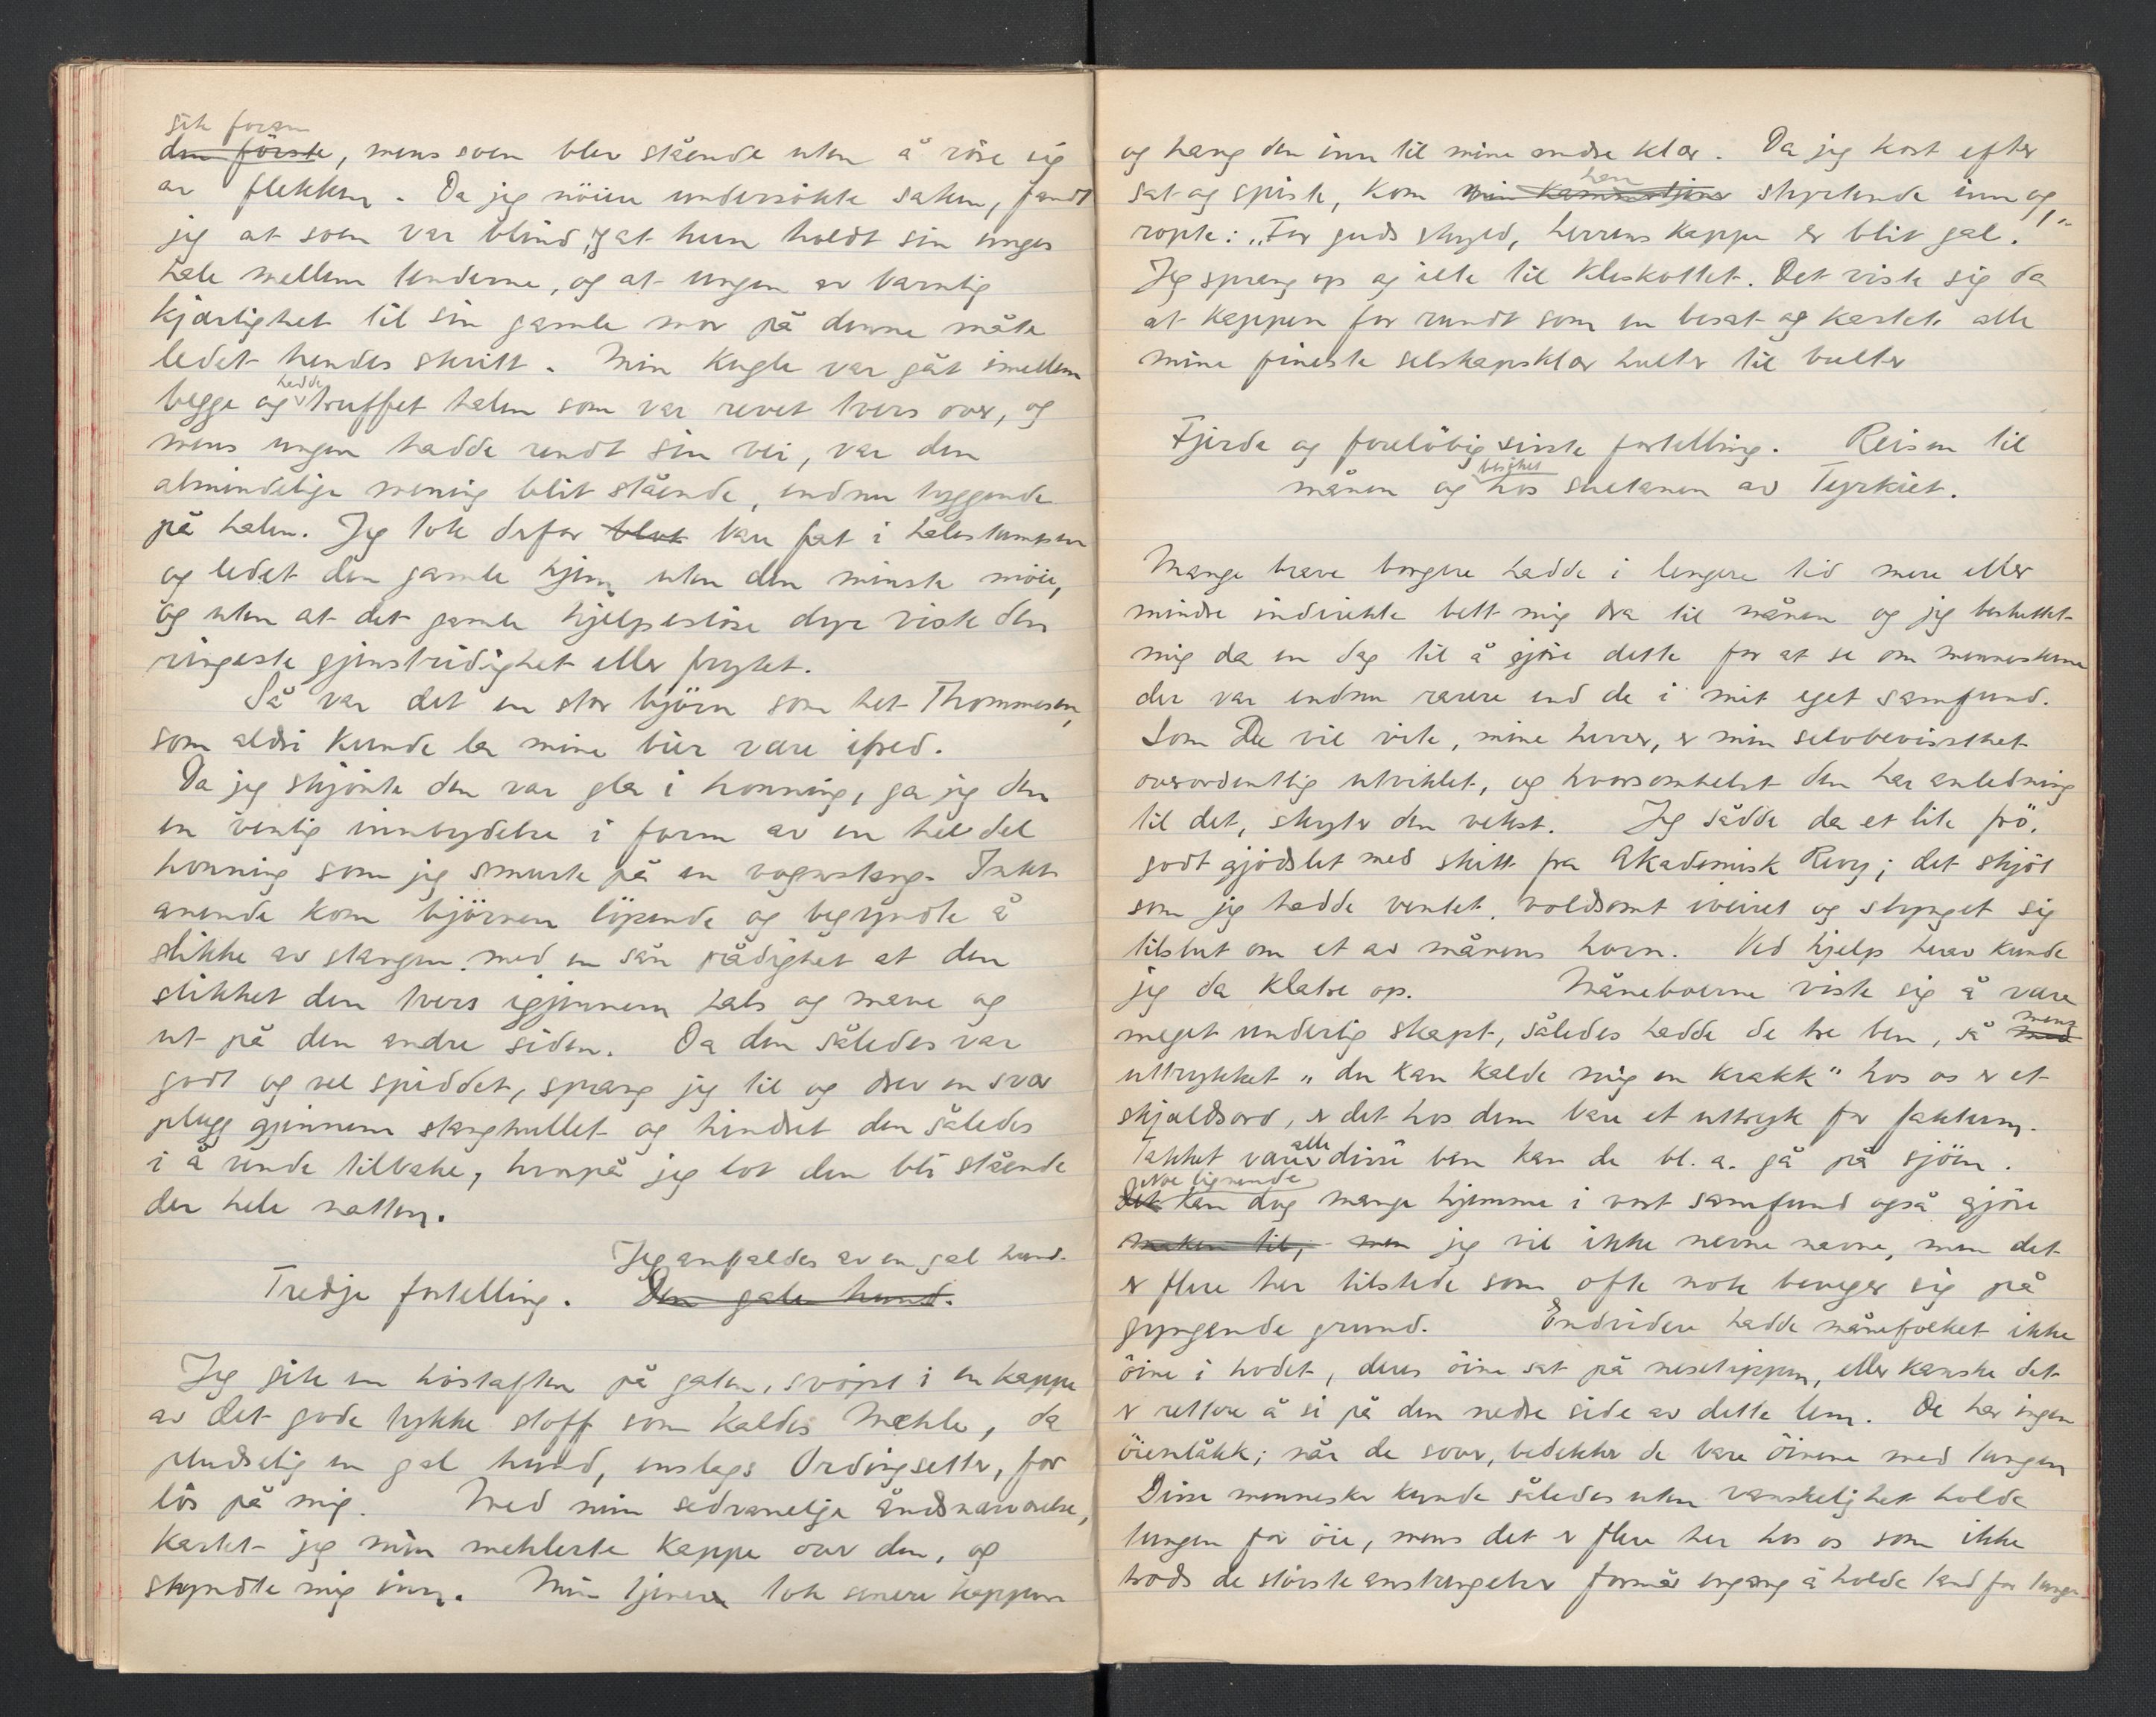 gik foran
den förste, mens soen blev stående uten å röre sig
av flekken. Da jeg nöiere undersökte saken, fandt
jeg at soen var blind, og at hun holdt sin unges
hale mellem tenderne, og at ungen av barnlig
kjærlighet til sin gamle mor på denne måte
ledet hendes skritt. Min kugle var gåt imellem
begge og hadde truffet halen som var revet tvers over, og
mens ungen hadde rendt sin vei, var den
almindelige mening blit stående, endnu tyggende
på halen. Jeg tok derfor blot bare fat i halestumpen
og ledet den gamle hjem, uten den minste möie,
og uten at det gamle hjelpeslöse dyr viste den
ringeste gjenstridighet eller frykt.
Så var det en stor björn som het Thommesen,
som aldri kunde la mine bier være ifred.
Da jeg skjönte den var gla i honning, ga jeg den
en venlig innbydelse i form av en hel del
honning som jeg smurte på en vognstang. Intet
anende kom björnen löpende og begyndte å
slikke av stangen med en sån grådighet at den
slikket den tvers igjennem hals og mave og
ut på den andre siden. Da den således var
godt og vel spiddet, sprang jeg til og drev en svær
plugg gjennem stanghullet og hindret den således
i å rende tilbake, hvorpå jeg lot den bli stående
der hele natten.
Jeg anfaldes av en gal hund.
Tredje fortelling. Den gale hund.
Jeg gik en höstaften på gaten, svöpt i en kappe
av det gode tykke stoff som kaldes Mæhle, da
pludselig en gal hund, enslags Ordingsetter, for
lös på mig. Med min sedvanelige åndsnærværelse,
kastet jeg min mehlerte kappe over den, og
skyndte mig inn. Min tjener tok senere kappen
og hang den inn til mine andre klær. Da jeg kort efter
sat og spiste, kom min kammertjener han styrtende inn og
ropte: „For guds skyld, herrens kappe er blit gal."
Jeg sprang op og ilte til kleskottet. Det viste sig da
at kappen for rundt som en besat og kastet alle
mine fineste selskapsklær hulter til bulter
Fjerde og forelöbig siste fortelling. Reisen til
månen og besöket hos sultanen av Tyrkiet.
Mange brave borgere hadde i lengere tid mere eller
mindre indirekte bett mig dra til månen og jeg besluttet
mig da en dag til å gjöre dette for at se om menneskene
der var endnu rarere end de i mit eget samfund.
Som De vil vite, mine herrer, er min selvbevissthet
overordentlig utviklet, og hvorsomhelst den har anledning
til det, skyter den vekst. Jeg sådde da et lite frö,
godt gjödslet med skitt fra Akademisk Revy; det skjöt
som jeg hadde ventet, voldsomt iveiret og slynget sig
tilslut om et av månens horn. Ved hjelp herav kunde
jeg da klatre op. Måneboerne viste sig å være
meget underlig skapt, således hadde de tre ben, så mens med
uttrykket „du kan kalde mig en krakk" hos os er et
skjældsord, er det hos dem bare et uttryk for faktum.
Takket være alle disse ben kan de bl. a. gå på sjöen.
Noe lignende
Det kan dog mange hjemme i vort samfund også gjöre
maken til, men jeg vil ikke nevne navne, men det
er flere her tilstede som ofte nok beveger sig på
gyngende grund. Endvidere hadde månefolket ikke
öine i hodet, deres öine sat på nesetippen, eller kanske det
er rettere å si på den nedre side av dette lem. De har ingen
öienlåkk; når de sover, bedekker de bare öinene med tungen
Disse mennesker kunde således uten vanskelighet holde
tungen for öie, mens det er flere her hos os som ikke
trods de störste anstrengelser formår engang å holde tand for tunge